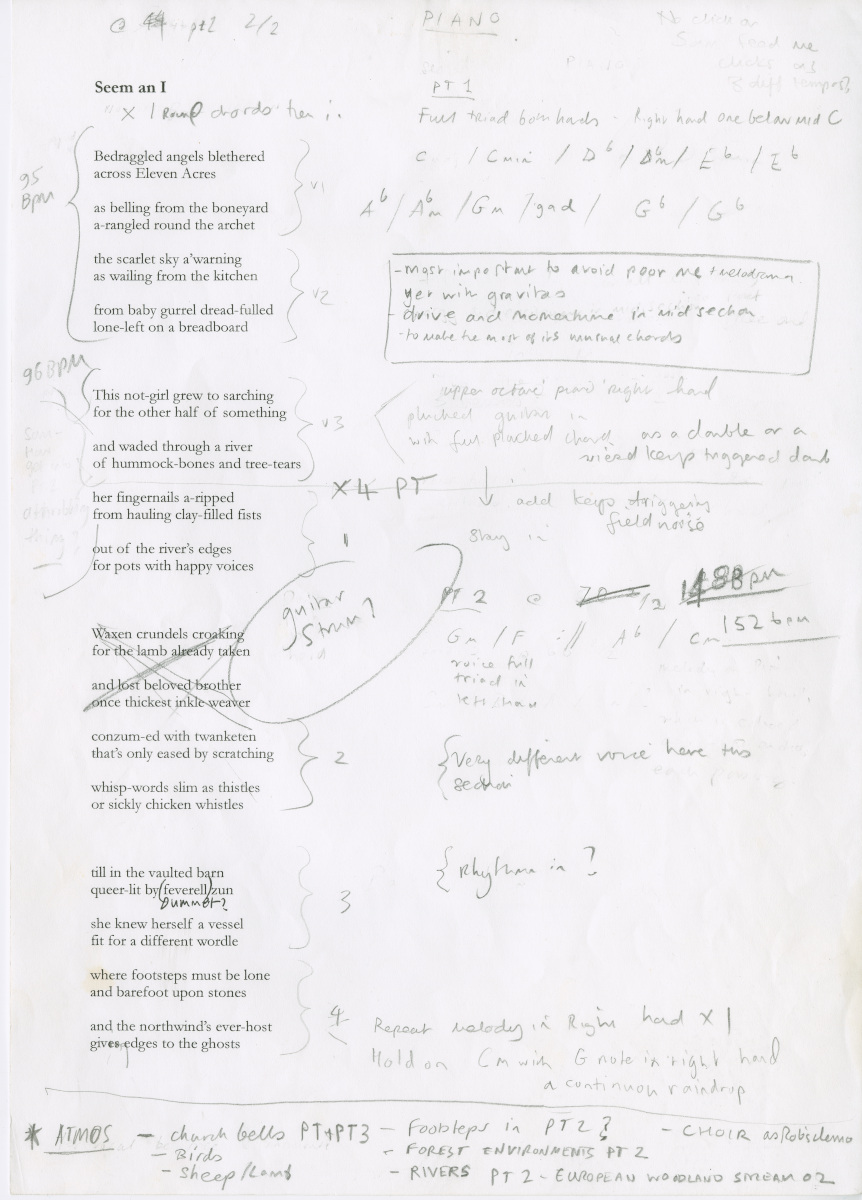 @ pt2 2/2
PIANO
No click or
Seem an I
PT 1
"x 1 Round chords then in
Full triad both hands - Right hand one below mid C
95
Bpm
Bedraggled angels blethered
across Eleven Acres
v1
C / Cmin / Db / Dbm / Eb / Eb
as belling from the boneyard
a-rangled round the archet
Ab / Abm / Gm / gad / Gb / Gb
the scarlet sky a'warning
as wailing from the kitchen
v2
from baby gurrel dread-fulled
lone-left on a breadboard
- most important to avoid poor me + melodrama.
yer with gravitas
- drive and momentum in mid section
- to make the most of its unusual chords
96 BPM
This not-girl grew to sarching
for the other half of something
v3
and waded through a river
of hummock-bones and tree-tears
'upper octave' piano right hand
plucked guitar in
with full plucked chord as a double or a
keys triggered
x4 PT
her fingernails a-ripped
from hauling clay-filled fists
add keys triggering
field noise
stay in
1
out of the river's edges
for pots with happy voices
guitar
strum?
PT 2 @ 1/2 148 Bpm
152 bpm
Gm / F :// Ab / Cm
voice full
triad in
left hand
Waxen crundels croaking
for the lamb already taken
and lost beloved brother
once thickest inkle weaver
conzum-ed with twanketen
that's only eased by scratching
2
Very different voice here this
section
whisp-words slim as thistles
or sickly chicken whistles
till in the vaulted barn
queer-lit by (feverell) zun
Dummet?
3
Rhythm in?
she knew herself a vessel
fit for a different wordle
where footsteps must be lone
and barefoot upon stones
4
and the northwind's ever-host
gives edges to the ghosts
Repeat melody in Right hand x 1
Hold on Cm with G note in right hand
a continuous raindrop
* ATMOS - church bells PT1+PT3
- Birds
- Sheep/Lamb
- Footsteps in PT 2?
- FOREST ENVIRONMENTS PT 2
- RIVERS PT 2 - EUROPEAN WOODLAND STREAM 02
- CHOIR as Rob's demo